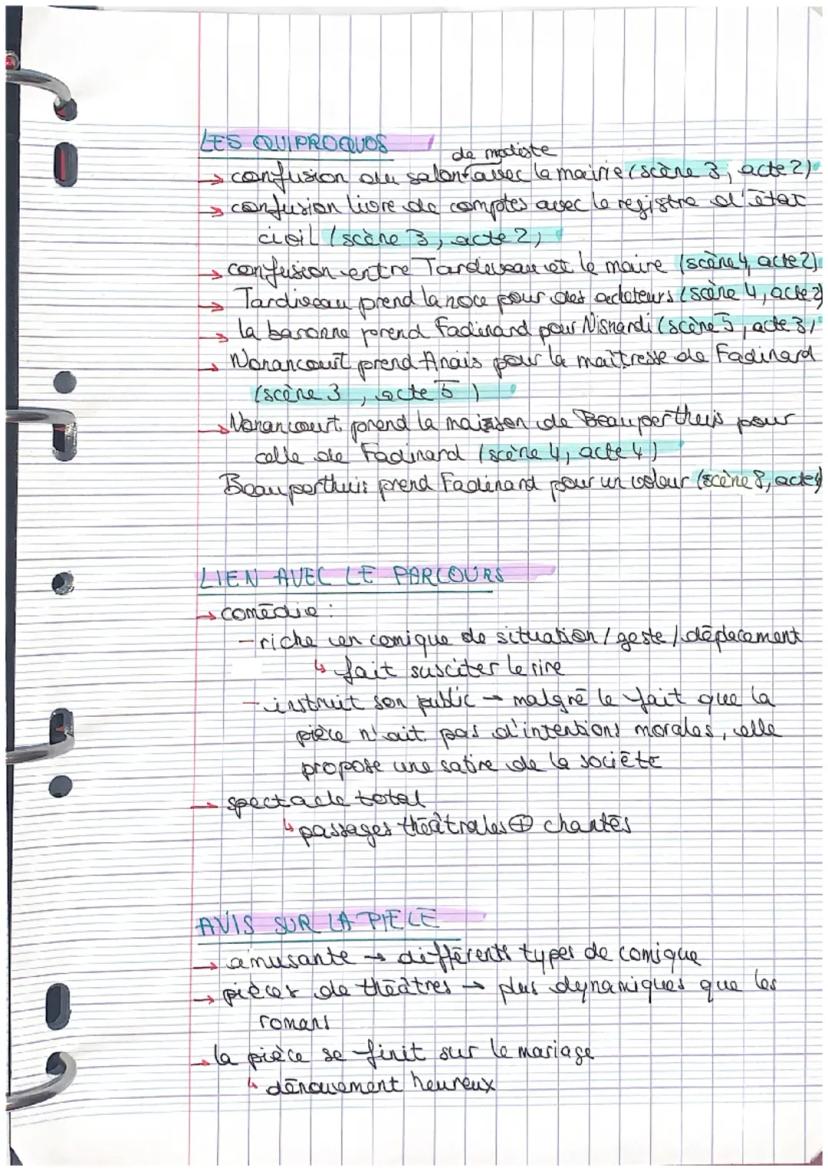 LES QUIPROQUOS
de modiste
→ confusion du salon avec la mairie (scène 3, acte 2)
→ confusion livre de comptes avec le registre d'état
civil (scène 3, acte 2)
→ confusion entre Tardiveau et le maire (scène 4, acte 2)
→ Tardiveau prend la noce pour des acheteurs (scène 4, acte 2)
→ la baronne prend Fadinard pour Nisnardi (scène 5, acte 3)
→ Nonancourt prend Anais pour la maîtresse de Fadinard
(scène 3, acte 5)
→ Nonancourt prend la maison de Beauperthuis pour
celle de Fadinard (scène 4, acte 4)
Beauperthuis prend Fadinard pour un voleur (scène 8, acte 4)
LIEN AVEC LE PARCOURS
→ comédie :
- riche en comique de situation / geste / déplacement
↳ fait susciter le rire
- instruit son public → malgré le fait que la
pièce n'ait pas d'intentions morales, elle
propose une satire de la société
→ spectacle total
↳ passages théâtrales ⊕ chantés
AVIS SUR LA PIECE
→ amusante → différents types de comique
→ pièces de théâtres → plus dynamiques que les
romans
→ la pièce se finit sur le mariage
↳ dénouement heureux